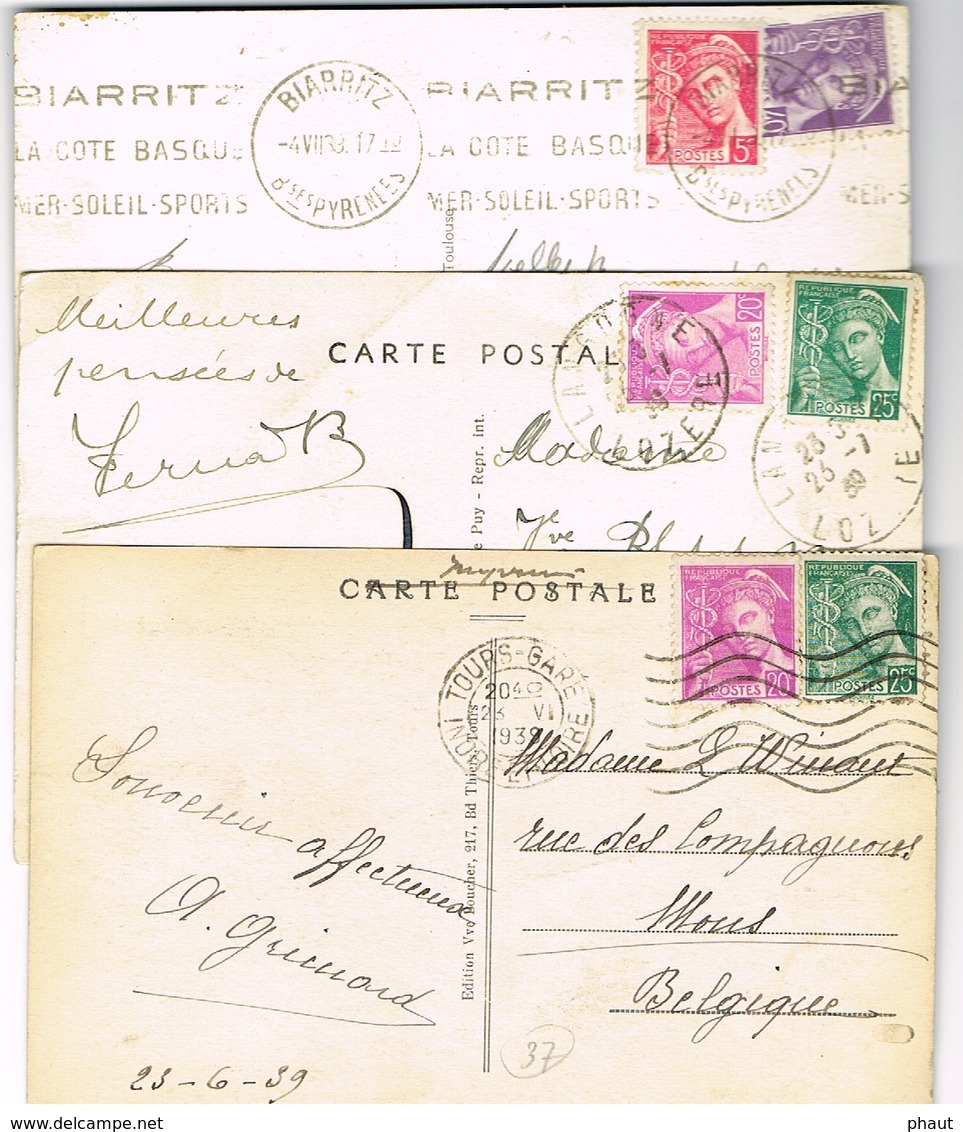 BIARRITZ
LA COTE BASQUE
MER-SOLEIL-SPORTS
BIARRITZ
-4 VII 39. 17
Bses PYRENEES
BIARRITZ
LA COTE BASQUE
MER-SOLEIL-SPORTS
REPUBLIQUE
FRANÇAISE
POSTES 5c
Bses PYRENEES
BIA
MER-S
Toulouse
Meilleures
pensées de
CARTE POSTAL
REPUBLIQUE
FRANÇAISE
POSTES 20c
REPUBLIQUE
FRANÇAISE
POSTES 25c
LOZERE
LAN
23
23 -7
39
LOZ
Madame
Vve
e Puy - Repr. int.
CARTE POSTALE
REPUBLIQUE
FRANÇAISE
POSTES 20c
REPUBLIQUE
FRANÇAISE
POSTES 25c
TOURS-GARE
2040
23 VI
1939
Souvenir
affectueux
A. Grimard
23-6-39
Edition Vve Boucher, 217, Bd Thiers, Tours
Madame L Winant
rue des Compagnons
Mons
Belgique
37
phaut